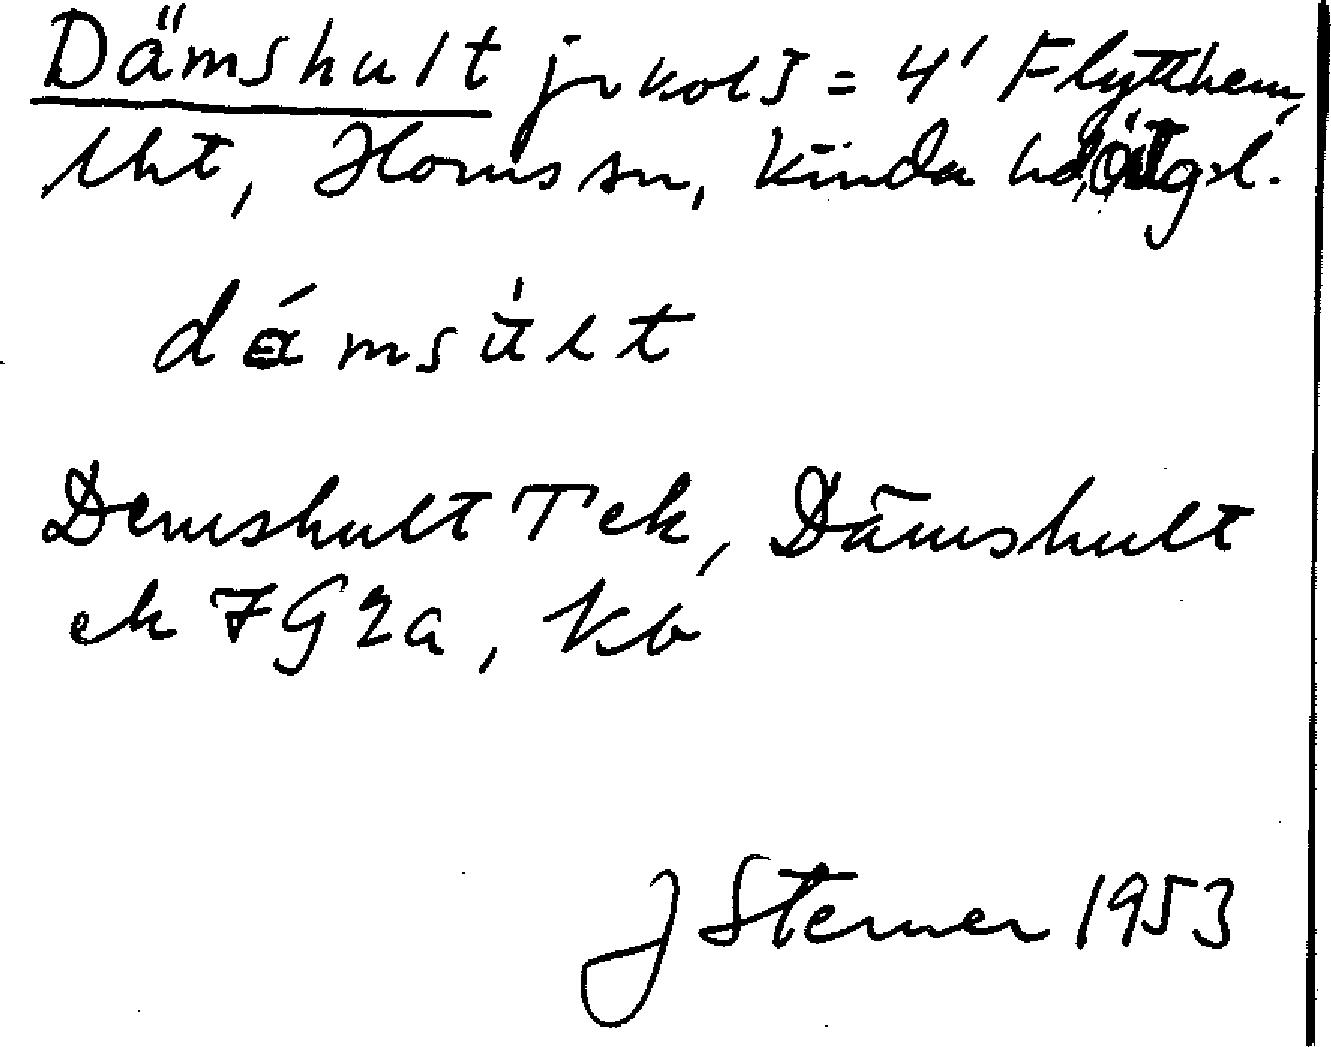 Dämshult jr kols = 4' Flytthem,
lht, Horns sn, Kinda hd, Ögl.
dámsúlt
Demshult Tek, Dämshult
ek 7G2a, Kb
J Sterner 1953